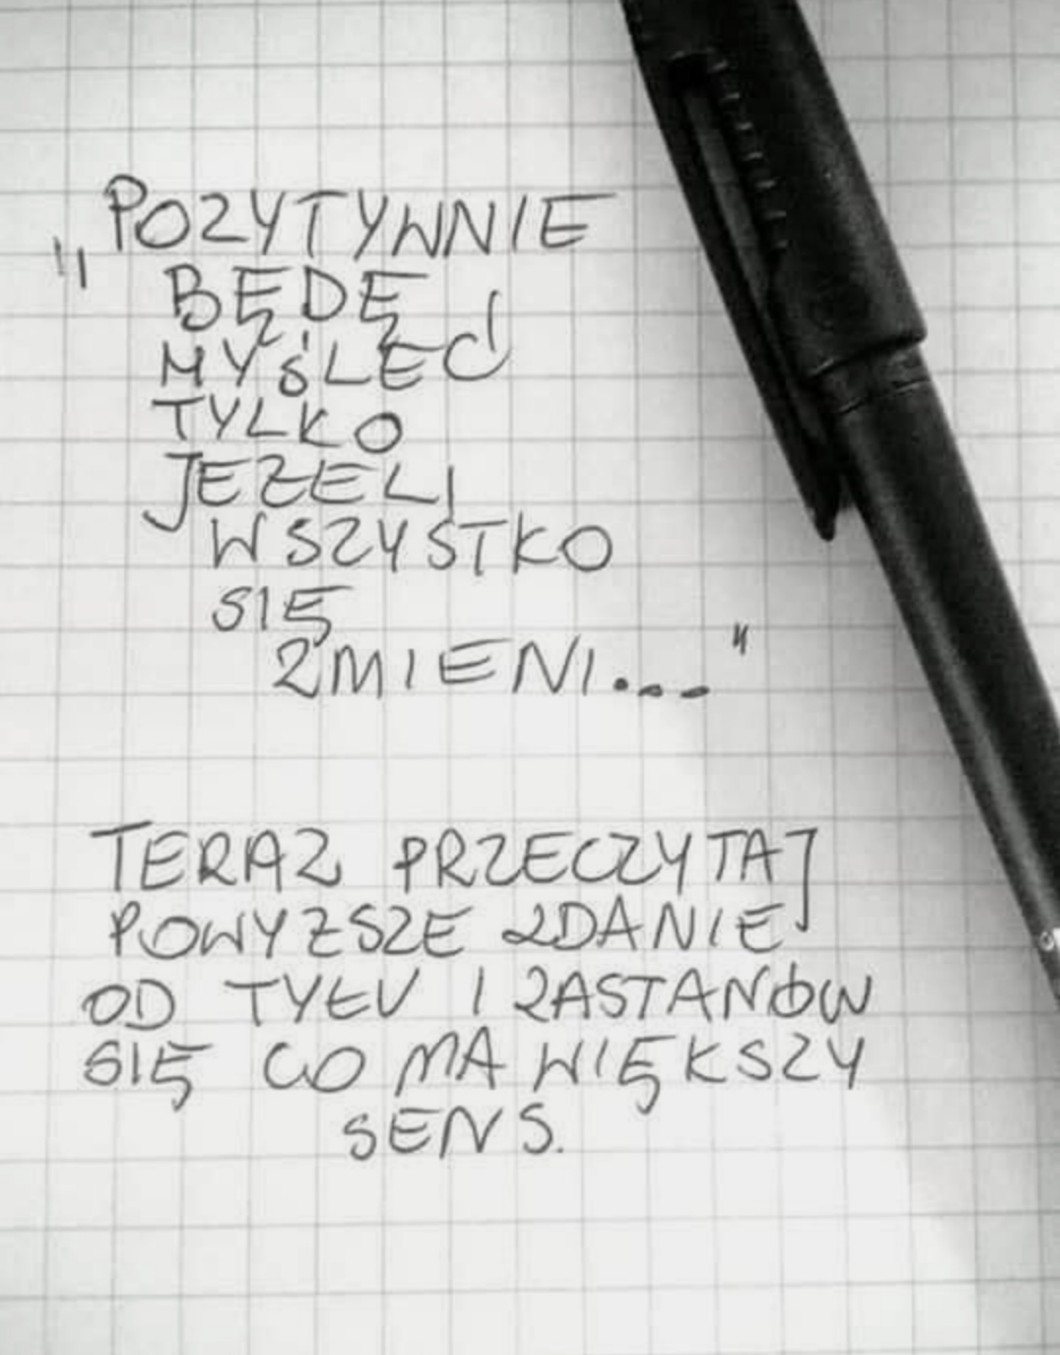 "POZYTYWNIE
BĘDĘ
MYŚLEĆ
TYLKO
JEŻELI
WSZYSTKO
SIĘ
ZMIENI..."
TERAZ PRZECZYTAJ
POWYŻSZE ZDANIE
OD TYŁU I ZASTANÓW
SIĘ CO MA WIĘKSZY
SENS.